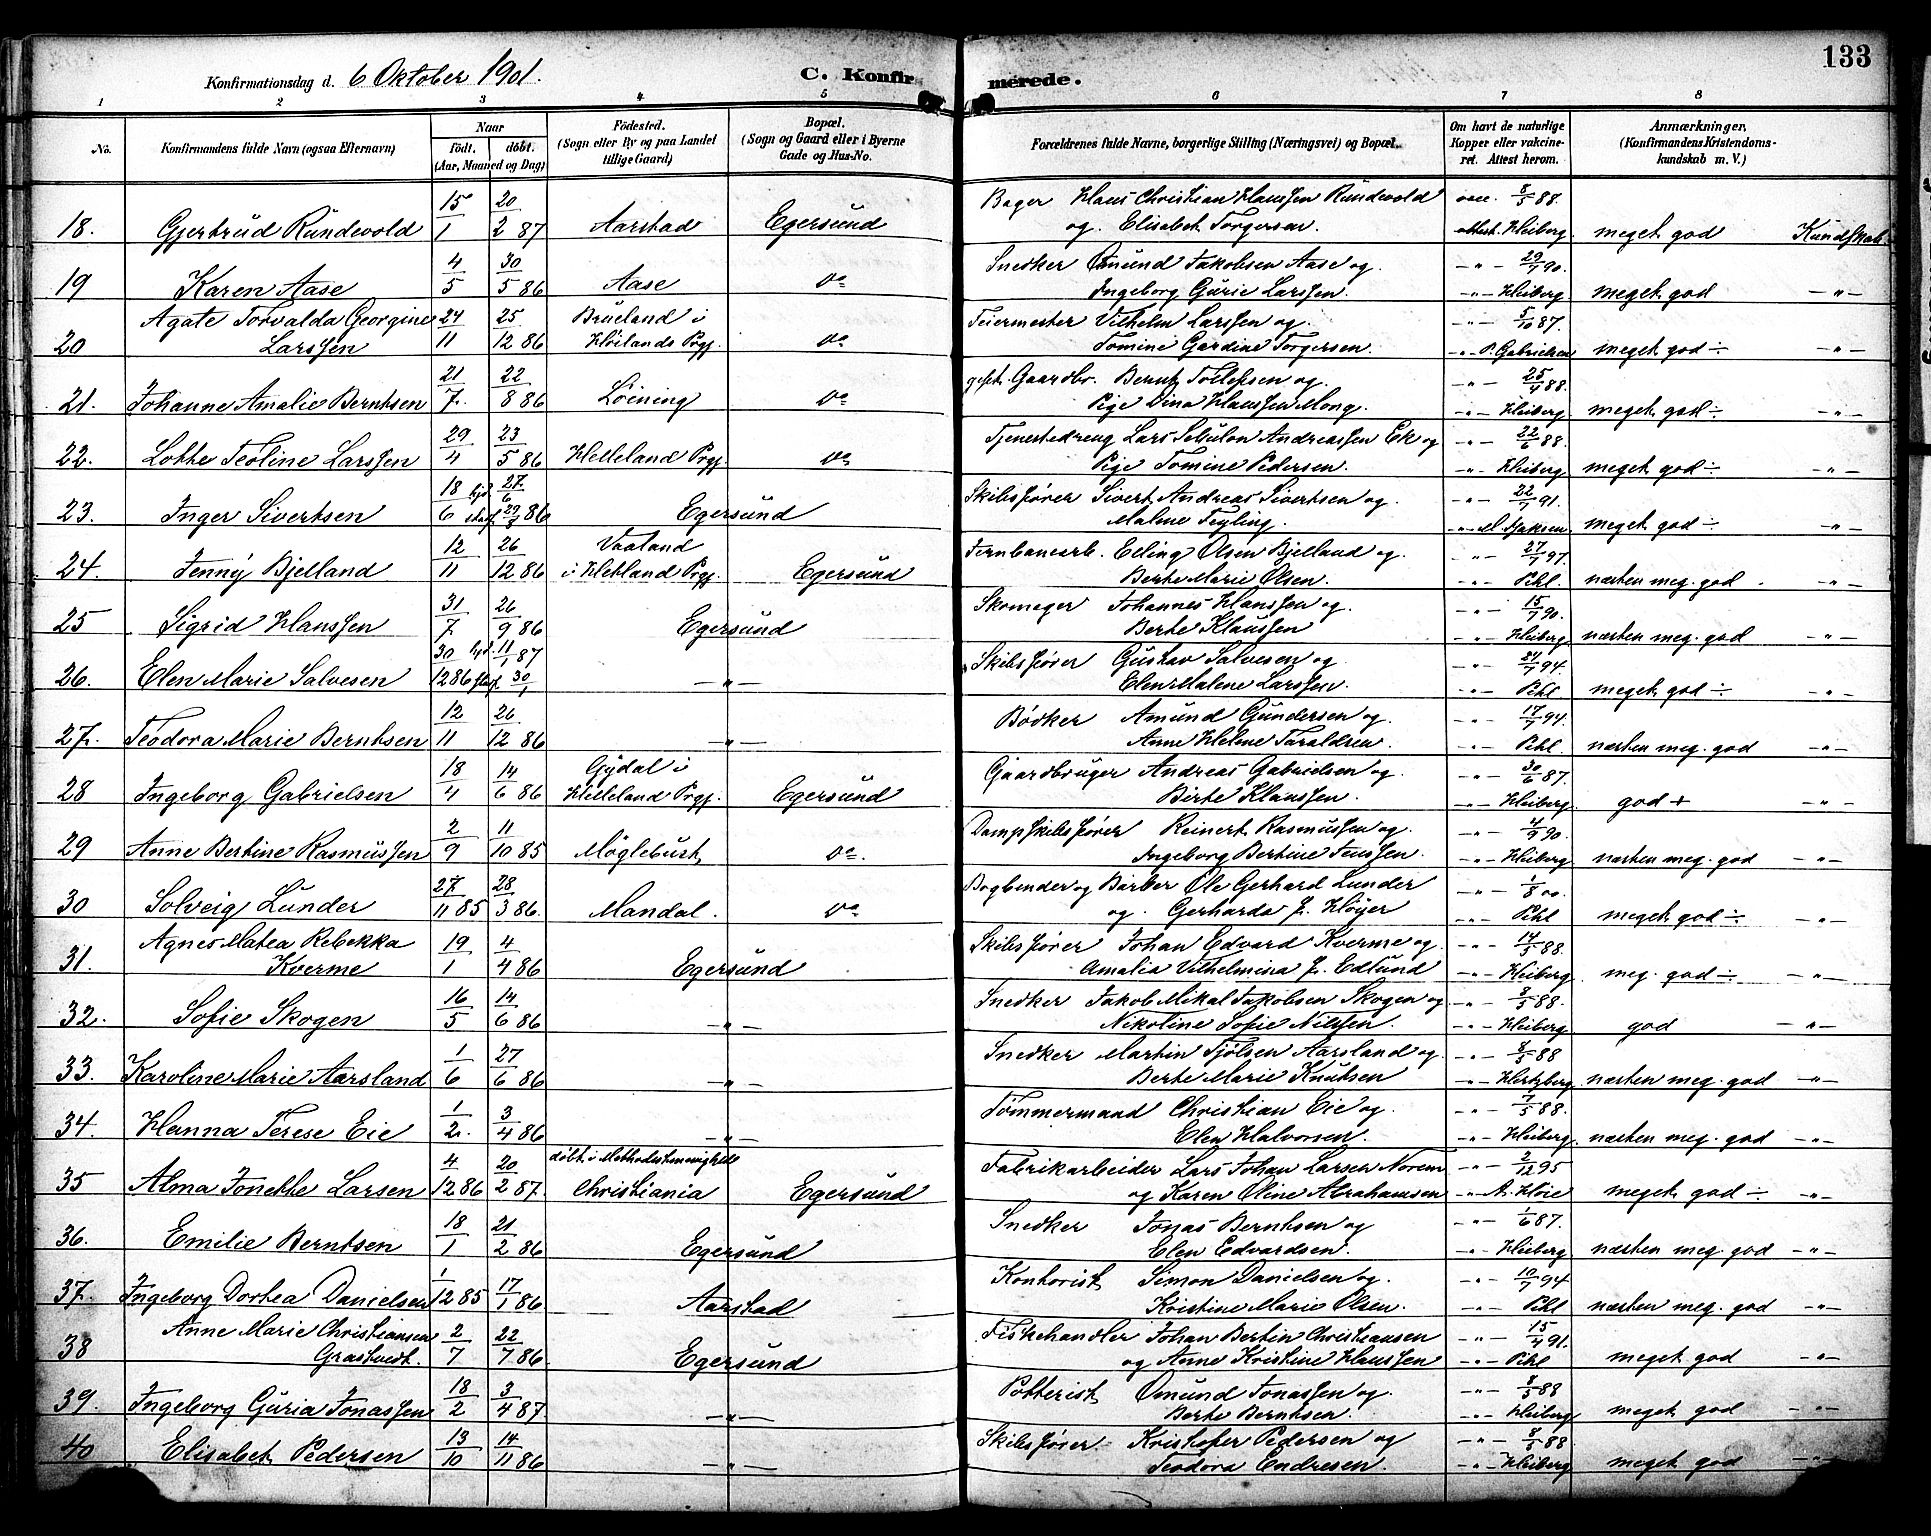 133
Konfirmationsdag d. 6 Oktober 1901.
C. Konfir- merede.
1 2 3 4 5 6 7 8
No. Konfirmandens fulde Navn (ogsaa Efternavn) Naar Født. døbt. (Aar, Maaned og Dag) Fødested. (Sogn eller By og paa Landet tillige Gaard) Bopæl. (Sogn og Gaard eller i Byerne Gade og Hus-No. Forældrenes fulde Navne, borgerlige Stilling (Næringsvei) og Bopæl. Om havt de naturlige Kopper eller vakcineret. Attest herom. Anmærkninger, (Konfirmandens Kristendomskundskab m. V.)
15 20 Bager Hans Christian Hanssen Rundevold vac. 8/5 88.
18. Gjertrud Rundevold 1 2 87 Aarstad Egersund og Elisabet Torgersen. attest. Heiberg meget god Kundskab
4 30 Snedker Omund Jakobsen Aase og -"- 29/1 90.
19 Karen Aase 5 5 86 Aase do Ingeborg Gurie Larssen. -"- Heiberg meget god -"-
Agate Torvalda Georgine 24 25 Brueland i Feiermester Vilhelm Larssen og -"- 5/10 87.
20 Larssen 11 12 86 Høilands Prgj. do Tomine Gardine Torgersen. -"- P. Gabrielsen meget god ÷ -"-
21 22 gift Gaardbr. Bernt Tollefsen og -"- 25/4 88.
21. Johanne Amalie Berntsen 7. 8 86 Löining do Pige Dina Hanssen Mong. -"- Heiberg meget god ÷ -"-
29 23 Tjenestedreng Lars Sebulon Andreassen Ek og -"- 22/6 88.
22. Lotte Teoline Larssen 4 5 86 Helleland Prgj. do Pige Tomine Pedersen. -"- Heiberg meget god ÷ -"-
18 hjd. 27/6 Skibsfører Sivert Andreas Sivertsen og -"- 22/1 91.
23. Inger Sivertsen 6 86 Egersund Malene Feyling. -"- M. Isaksen meget god ÷ -"-
12 26 Vaaland Jernbanearb. Elling Olsen Bjelland og -"- 27/7 97.
24. Jenny Bjelland 11 12 86 i Hetland Prgj. Egersund Berte Marie Olsen. -"- Pihl næsten meg. god -"-
31 26 Skomager Johannes Hanssen og -"- 15/7 90.
25 Sigrid Hanssen 7. 9 86 Egersund Berte Klaussen -"- Heiberg næsten meg. god -"-
30 hjd. 11/1 87 Skibsfører Gustav Salvesen og -"- 24/7 94
26. Elen Marie Salvesen 12 86 30/1 -"- Elen Malene Larssen. -"- Pihl meget god ÷ -"-
12 26 Bødker Amund Gundersen og -"- 17/7 94.
27. Teodora Marie Berntsen 11 12 86 -"- Anne Helene Taraldsen. -"- Pihl næsten meg. god -"-
18 14 Gydal i Gaardbruger Andreas Gabrielsen og -"- 30/6 87.
28 Ingeborg Gabrielsen 4 6 86 Helleland Prgj. Egersund Birte Klaussen. -"- Heiberg god + -"-
2 11 Dampskibsfører Reinert Rasmussen og -"- 4/9 90.
29 Anne Bertine Rasmussen 9 10 85 Møglebust do. Ingeborg Bertine Jenssen. -"- Heiberg næsten meg. god -"-
27 28 Bogbinder og Barber Ole Gerhard Lunder -"- 1/8 00.
30 Solveig Lunder 11 85 3 86. Mandal. do og Gerharda f. Höyer -"- Pihl meget god ÷ -"-
Agnes Matea Rebekka 19 4 Skibsfører Johan Edvard Kverme og -"- 14/5 88.
31. Kverme 1 4 86 Egersund Amalia Vilhelmina f. Edlund -"- Heiberg meg. god ÷ -"-
16 14 Snedker Jakob Mikal Jakobsen Skogen og -"- 8/5 88.
32. Sofie Skogen 5 6 86 -"- Nikoline Sofie Nilssen. -"- Heiberg god -"-
1 27 Snedker Martin Tjølsen Aarsland og -"- 8/5 88
33. Karoline Marie Aarsland 6 6 86 -"- Berte Marie Knutsen -"- Hertzberg næsten meg. god -"-
1 3 Tømmermand Christian Eie og -"- 7/5 88.
34. Hanna Terese Eie 2. 4 86 -"- Elen Halvorsen. -"- Heiberg næsten meg. god -"-
4 20 døbt i Methodistmenighede Fabrikarbeider Lars Johan Larsen Norem -"- 2/12 95
35 Alma Jonette Larsen 12 86 2 87. Christiania Egersund og Karen Oline Abrahamsen -"- A. Høie meget god ÷ -"-
18 21 Snedker Jonas Berntsen og -"- 1/6 87.
36. Emilie Berntsen 1 2 86 Egersund Elen Edvardsen. -"- Heiberg næsten meg. god -"-
1 17 Kontorist Simon Danielsen og -"- 10/7 94
37. Ingeborg Dortea Danielsen 12 85 1 86 Aarstad Kristine Marie Olsen. -"- Pihl næsten meg. god -"-
Anne Marie Christiansen 2 22 Fiskehandler Johan Bertin Christiansen -"- 15/4 91.
38 Grastvedt. 7 7 86 Egersund og Anne Kristine Hanssen -"- Pihl meget god -"-
18 3 Potterist Omund Jonassen og -"- 8/5 88
39. Ingeborg Guria Jonassen 2 4 87 -"- Berte Berntsen. -"- Heiberg meget god -"-
13 14 Skibsfører Kristofer Pedersen og -"- 8/5 88
40 Elisabet Pedersen 10 11 86 -"- Teodora Endresen. -"- Heiberg meget god -"-